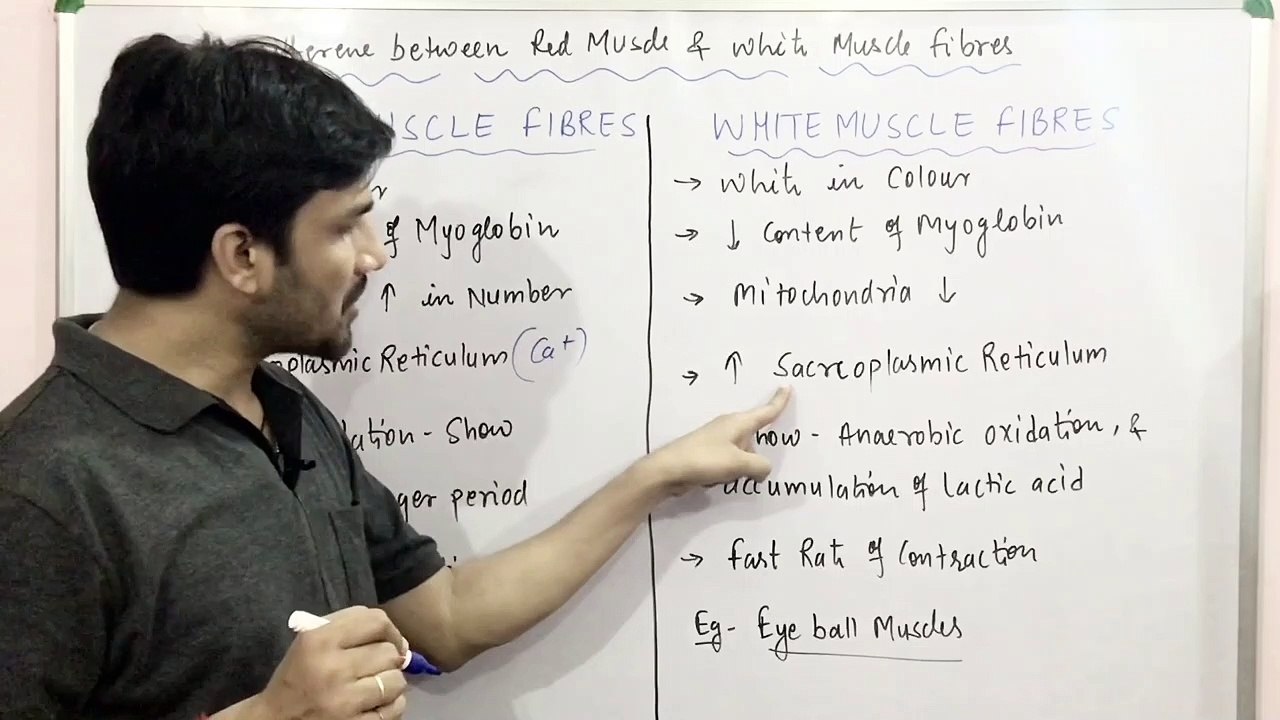 between Red Muscle & whit Muscle fibres
FIBRES
of Myoglobin
↑ in Number
Reticulum (Ca+)
- Show
period
WHITE MUSCLE FIBRES
→ whit in Colour
→ ↓ Content of Myoglobin
→ Mitochondria ↓
→ ↑ Sacrcoplasmic Reticulum
- Anaerobic oxidation, &
accumulation of lactic acid
→ fast Rat of Contraction
Eg- Eye ball Muscles